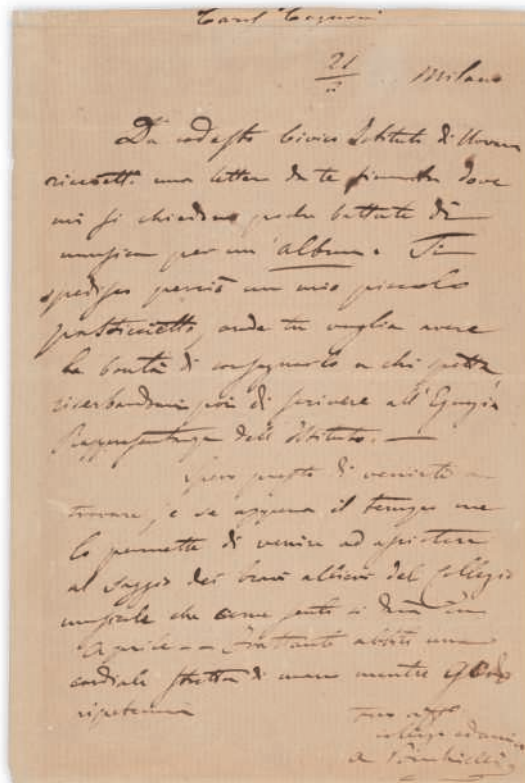 Carol Cagnoni
21 Milano
Da codesto Civico Istituto di Novara
ricevetti una lettera da te firmata dove
mi si chiedono poche battute di
musica per un' album. Ti
spedisco perciò un mio piccolo
pasticcietto, onde tu voglia avere
la bontà di consegnarlo a chi spetta,
riserbandomi poi di scrivere all'Egregia
Rappresentanza dell'Istituto. —
Spero presto di venirti a
trovare, e se appena il tempo me
lo permette di venire ad assistere
al saggio dei bravi allievi del Collegio
musicale che come senti si darà in
Aprile — Frattanto abbiti una
cordiale stretta di mano mentre
tuo aff
collega ed amico
A Ponchielli